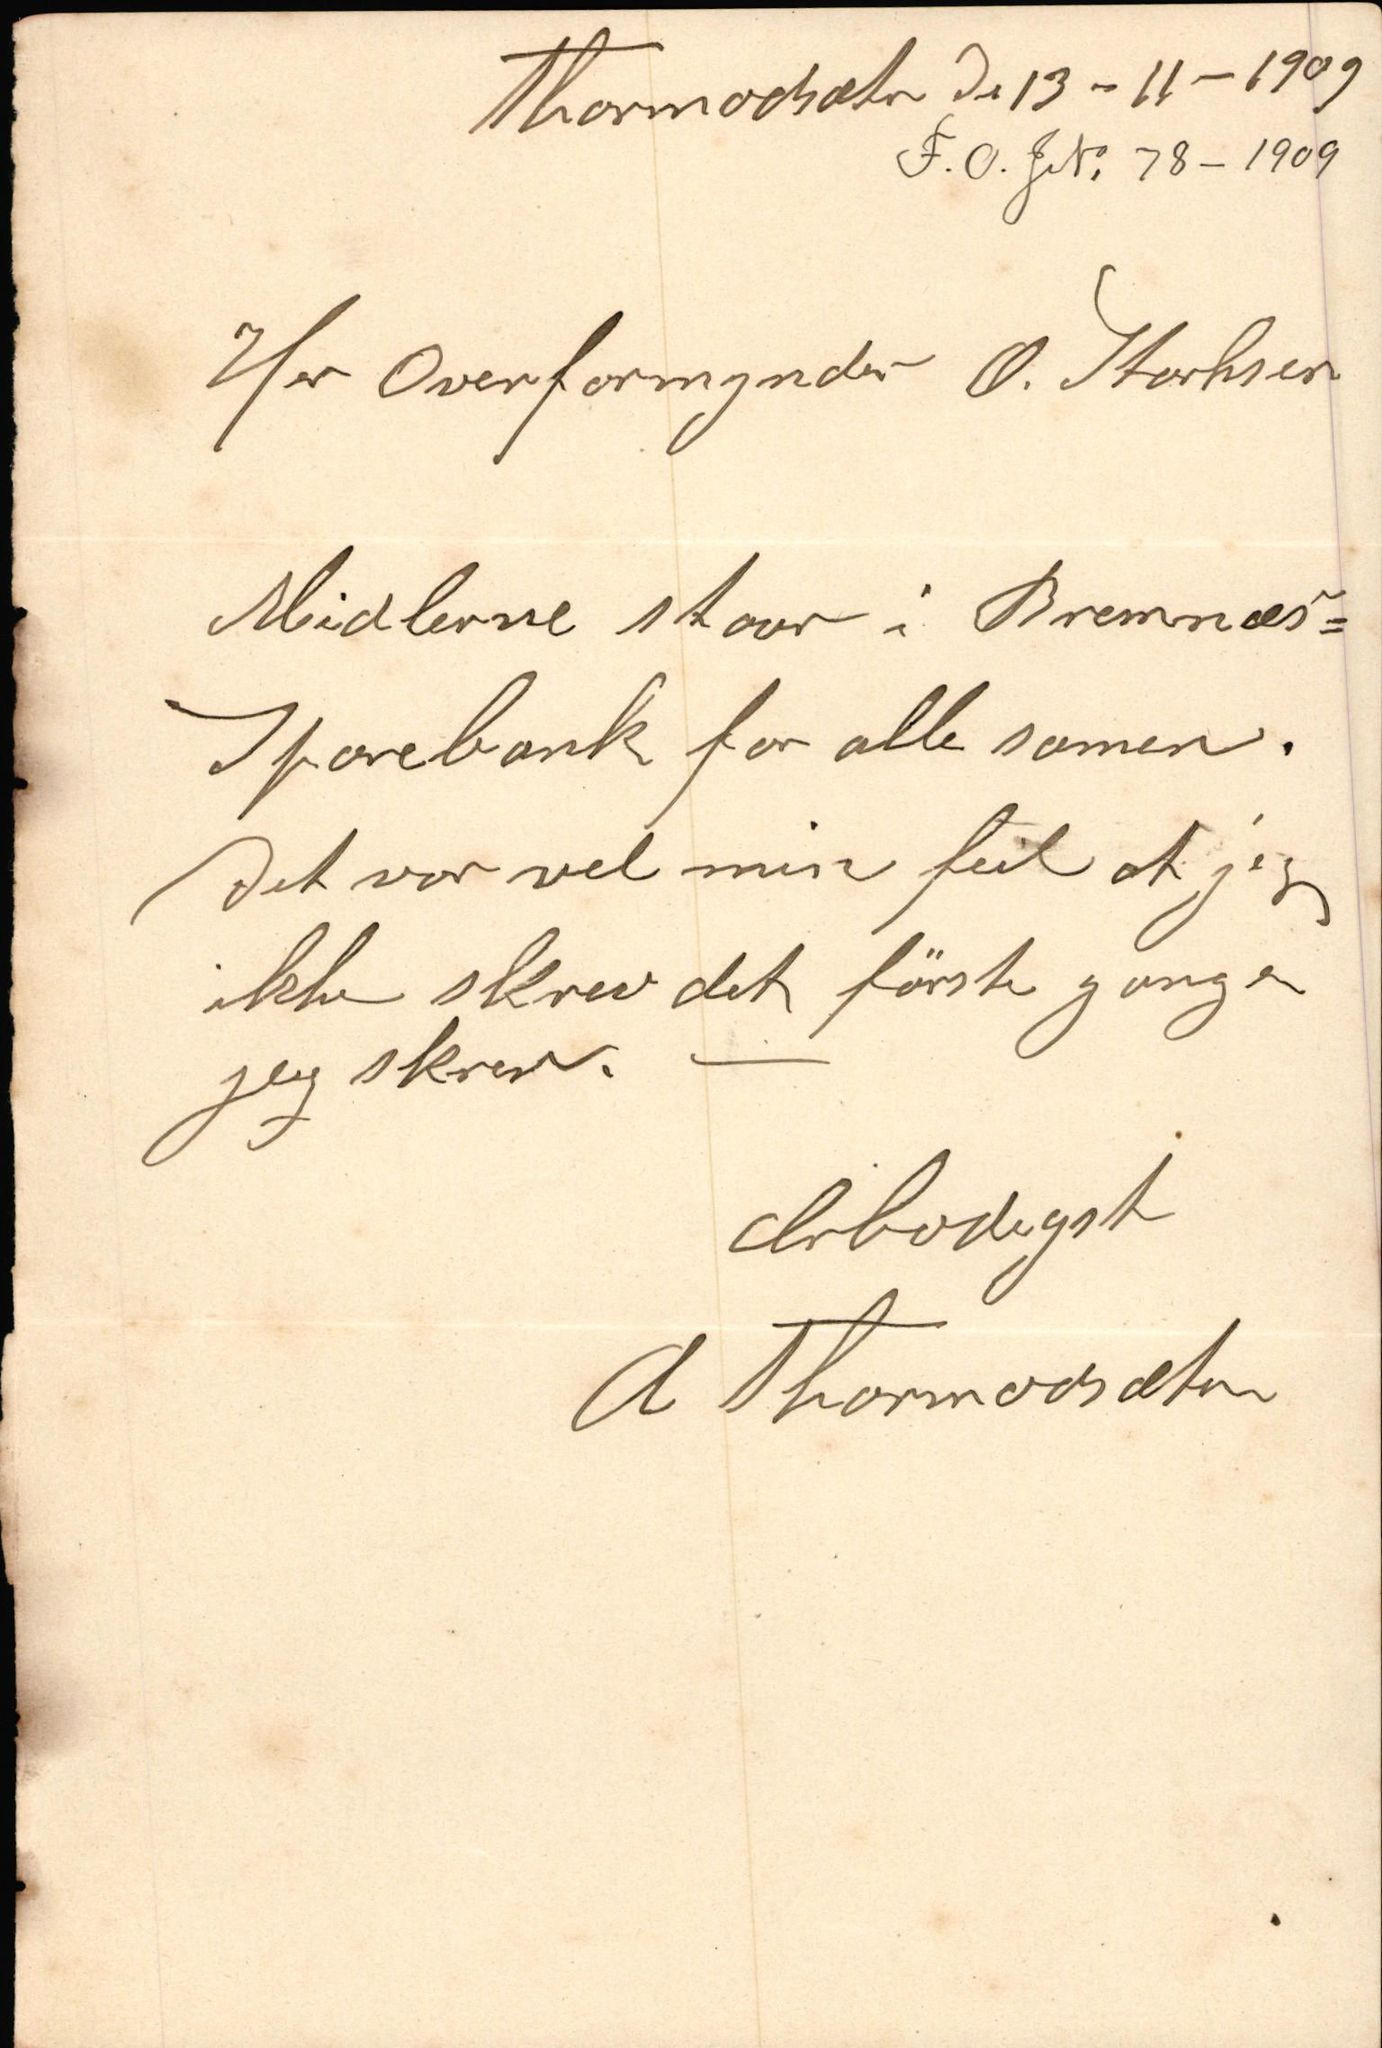 Thormodsæter De 13 - 11 - 1909
F. O. J.No. 78 - 1909
Her Overformynder O. Storksen
Midlerne staar i Bremnæs=
Sparebank for alle samen.
Det var vel min feil at jeg
ikke skrev det förste gangen
jeg skrev. —
Ærbødigst
A Thormodsæter